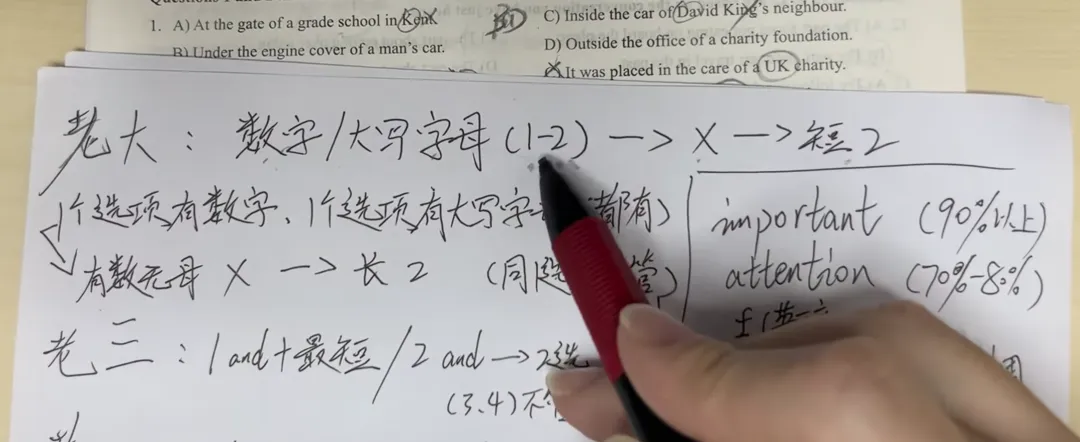 1. A) At the gate of a grade school in Kent
C) Inside the car of David King's neighbour.
B) Under the engine cover of a man's car.
D) Outside the office of a charity foundation.
It was placed in the care of a UK charity.
老大：数字/大写字母(1-2) → X → 短2
1个选项有数字、1个选项有大写字 都有)
有数无母 X → 长2 (同选
important (90%以上)
attention (70%-80%)
老三：1and+最短/2 and → 2选
(3.4)不